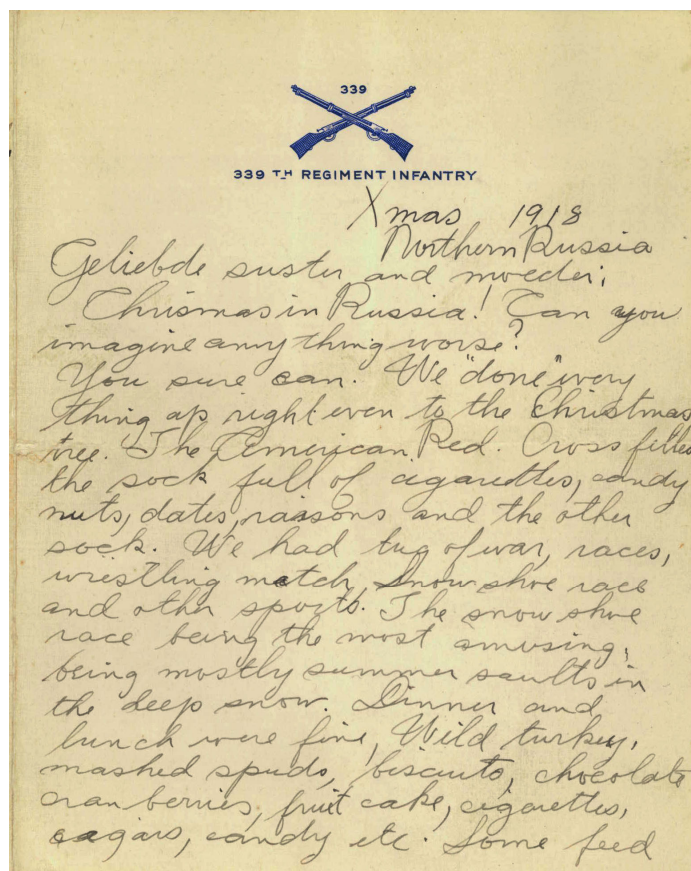 339
339TH REGIMENT INFANTRY
Xmas 1918
Northern Russia
Geliebde suster and moeder;
Chrismas in Russia! Can you
imagine anything worse?
You sure can. We "done" every
thing up right even to the Christmas
tree. The American Red. Cross filled
the sock full of cigarettes, candy
nuts, dates, raisons and the other
sock. We had tug of war, races,
wrestling match, Snow shoe race
and other sports. The snow shoe
race being the most amusing,
being mostly summer saults in
the deep snow. Dinner and
lunch were fine, Wild turkey,
mashed spuds, biscuits, chocolate
cranberries, fruit cake, cigarettes,
cagars, candy etc. Some feed